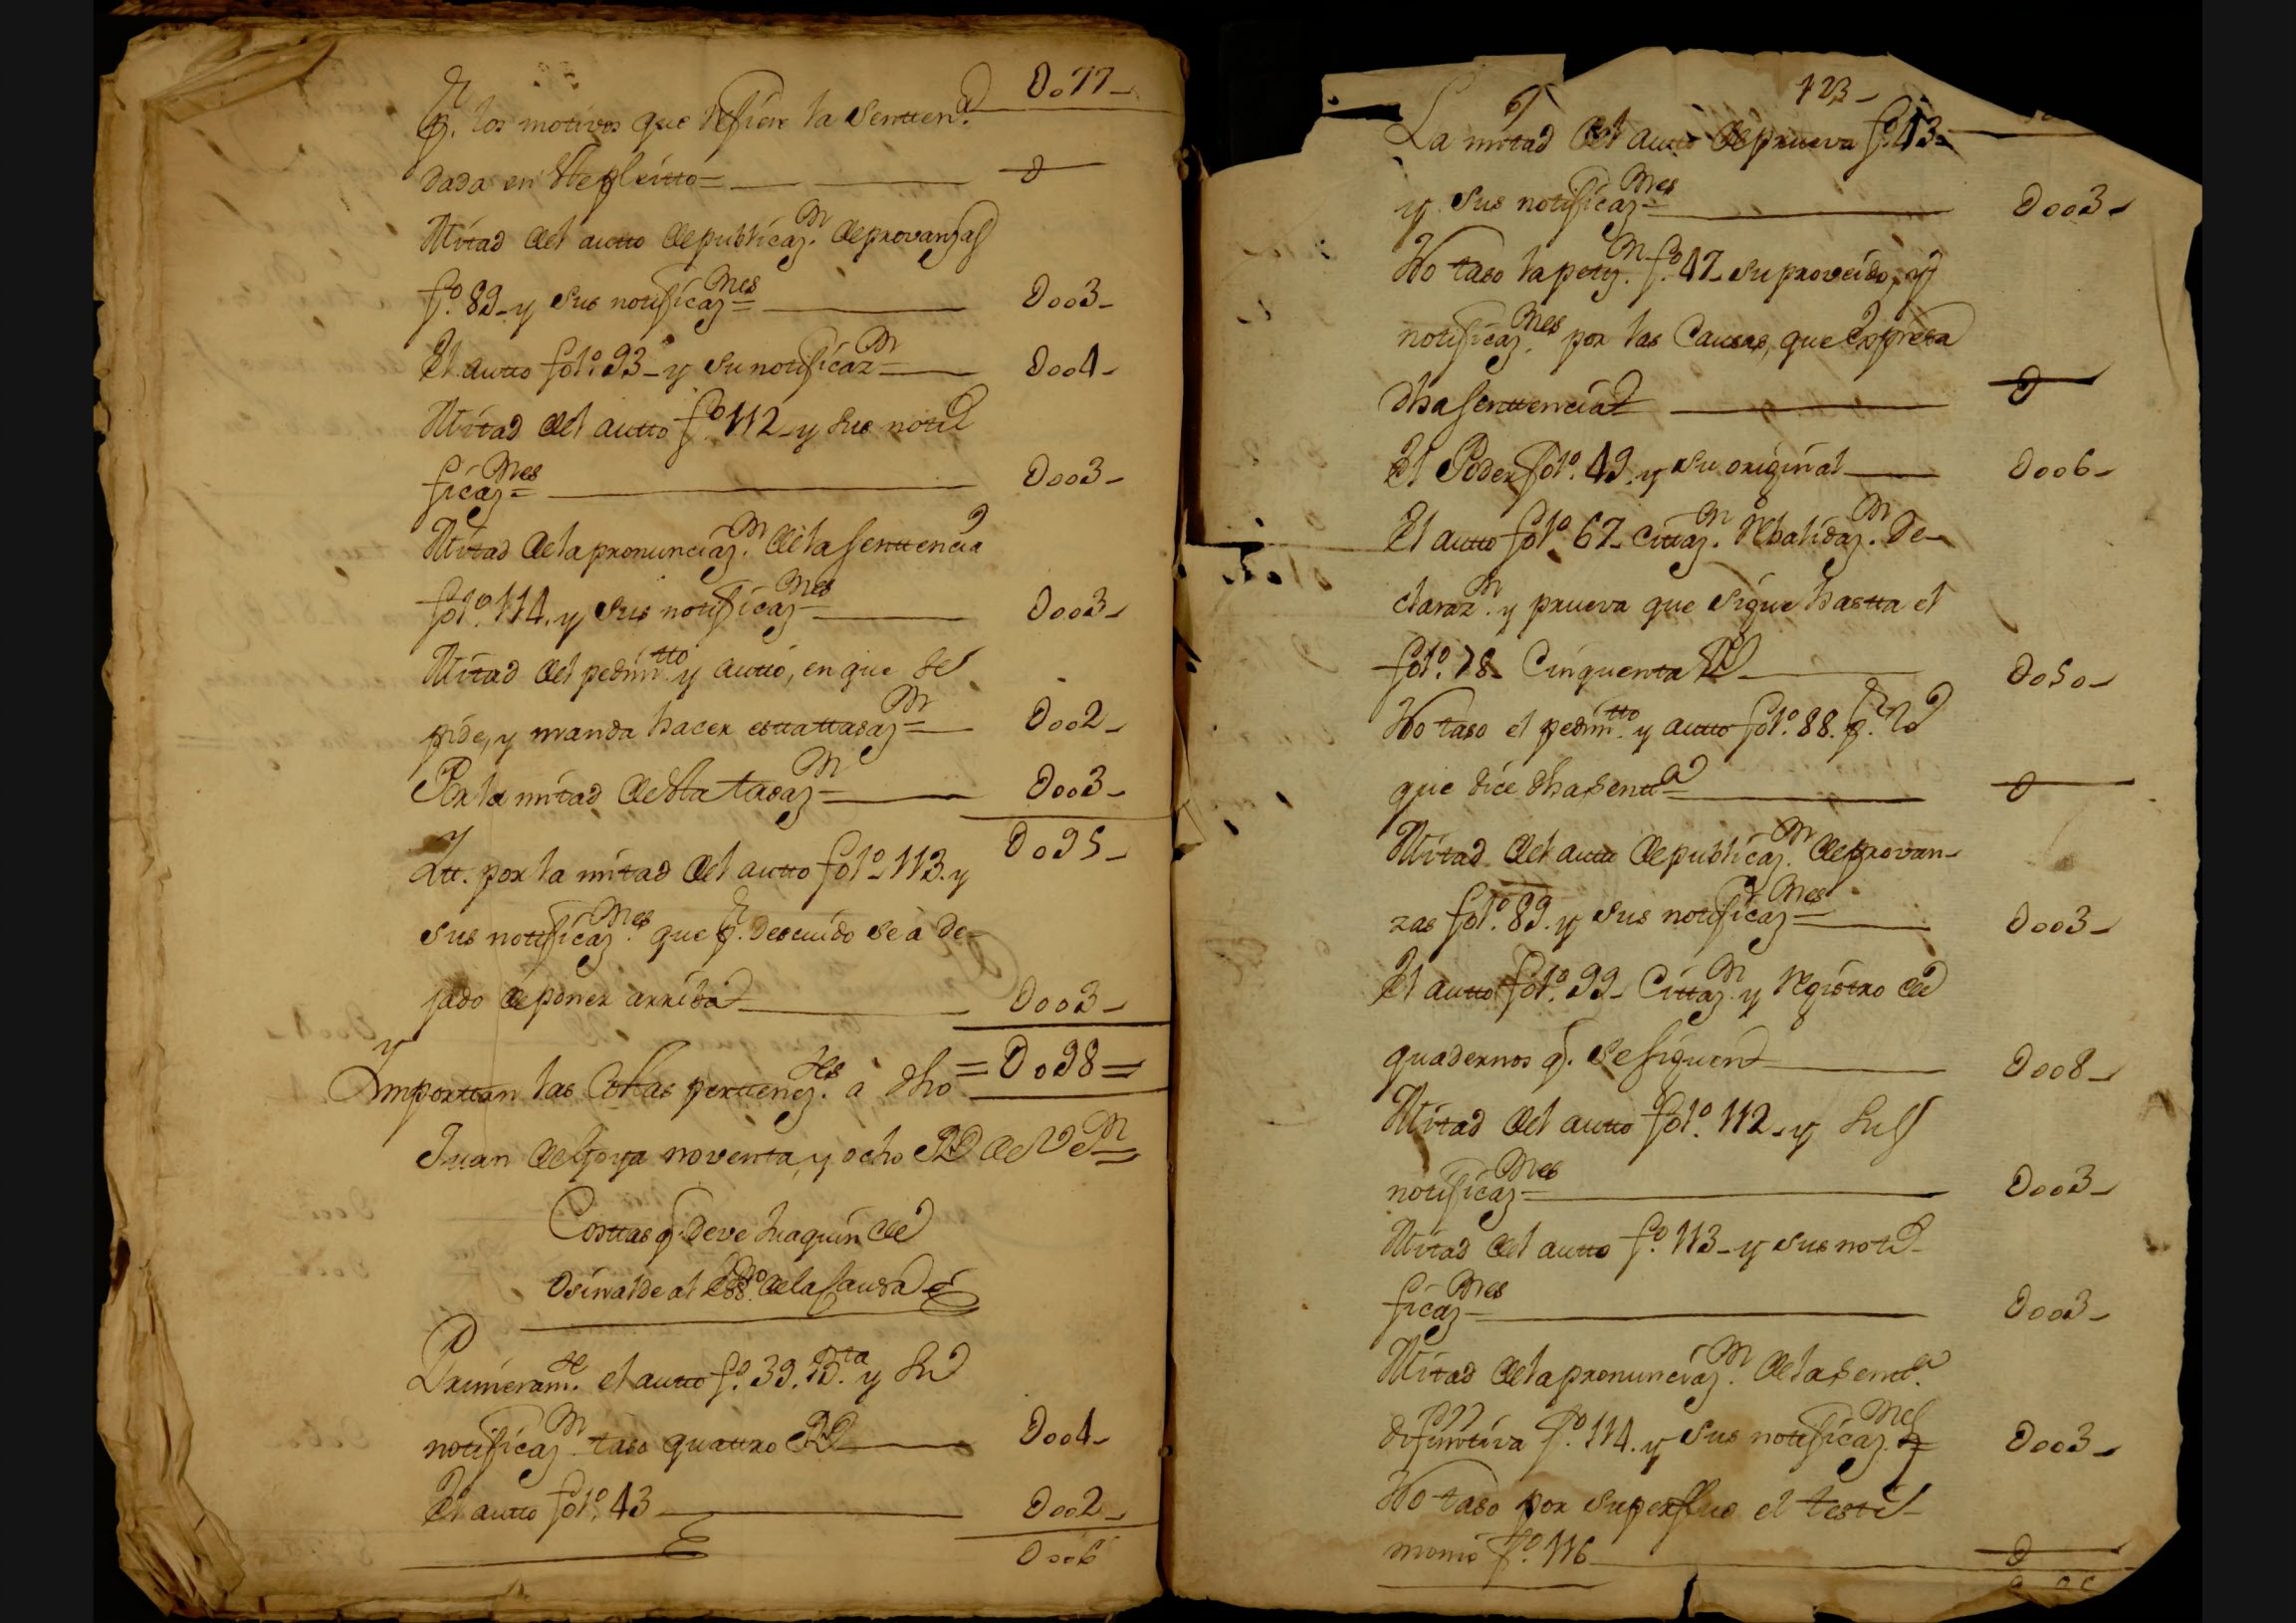 D077-
Pr. los motivos que refiere la Senten.a
dada en este pleitto= D
Mitad del autto de publicaz.on de provanzas
f.o 89- y sus notificaz.nes= D003-
El autto fol.o 93- y su notificaz.on= D004-
Mitad del autto f.o 112- y sus noti
ficaz.nes= D003-
Mitad de la pronunciaz.on de la senttencia
fol.o 114. y sus notificaz.nes= D003-
Mitad del pedim.tto y autto, en que se
pide, y manda hacer estta ttasaz.on= D002-
Por la mitad de esta tasaz.on= D003-
D095-
Itt. por la mitad del autto fol.o 113. y
sus notificaz.nes que pr. descuido se a de-
jado de poner arriba D003-
Importtan las Costtas perttenez.tes a dho =D098=
Juan de Goya noventa, y ocho Rs de V.on=
Costtas q. deve Juaquin de
Osinalde al Ess.o de la Causa
Primeram.te el autto f.o 39. B.ta y su
notificaz.on taso quattro Rs D004-
El autto fol.o 43 D002-
D006
123-
La mitad del autto de prueva f.o 43-
y sus notificaz.nes= D003-
No taso la petiz.on f.o 47- su proveido, y
notificaz.nes por las Causas, que expresa
dha senttencia D
El Poder fol.o 49. y su original D006-
El autto fol.o 67- Cittaz.on Rebalidaz.on De-
claraz.on y prueva que sigue hastta el
fol.o 78- Cinquenta Rs D050-
No taso el pedim.tto y autto fol.o 88. pr. lo
que dice dha sentt.a= D
Mitad del autto de publicaz.on de provan-
zas fol.o 89. y sus notificaz.nes= D003-
El autto fol.o 99- Cittaz.on y Registro de
quadernos q. se siguen D008-
Mitad del autto fol.o 112- y sus
notificaz.nes= D003-
Mitad del autto f.o 113- y sus noti-
ficaz.nes= D003-
Mitad de la pronunciaz.on de la sentt.a
difinitiva f.o 114. y sus notificaz.nes D003-
No taso por superfluo el testi-
monio f.o 116 D